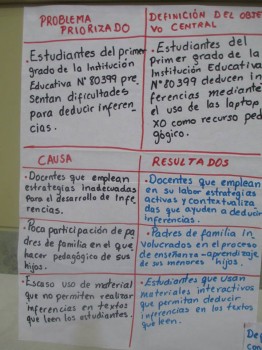 PROBLEMA
PRIORIZADO
. Estudiantes del primer
grado de la Institución
Educativa Nº 80399 pre
Sentan dificultades
para deducir inferen
cias.
DEFINICIÓN DEL OBJE
VO CENTRAL
. Estudiantes del
Primer grado de la
Institución Educativa
Nº 80399 deducen in
ferencias mediante
el uso de las laptop
XO como recurso ped
gógico.
CAUSA
. Docentes que emplean
estrategias inadecuadas
Para el desarrollo de infe
rencias.
. Poca participación de pa
dres de familia en el que
hacer pedagógico de sus
hijos.
. Escaso uso de material
que no permiten realizar
inferencias en los textos
que leen los estudiantes.
RESULTADOS
. Docentes que emplean
en su labor estrategias
activas y contextualiza
das que ayuden a deducir
inferencias.
. Padres de familia in
volucrados en el proceso
de enseñanza - aprendizaje
de sus menores hijos.
. Estudiantes que usan
Materiales interactivos
que permitan deducir
inferencias en los textos
que leen.